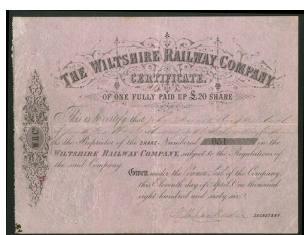 THE WILTSHIRE RAILWAY COMPANY
CERTIFICATE
OF ONE FULLY PAID UP £20 SHARE
This is to certify that
is the Proprietor of the SHARE Numbered 651 in the
WILTSHIRE RAILWAY COMPANY, subject to the Regulations of
the said Company.
Given under the Common Seal of the Company,
this Eleventh day of April One thousand
eight hundred and sixty six
SECRETARY